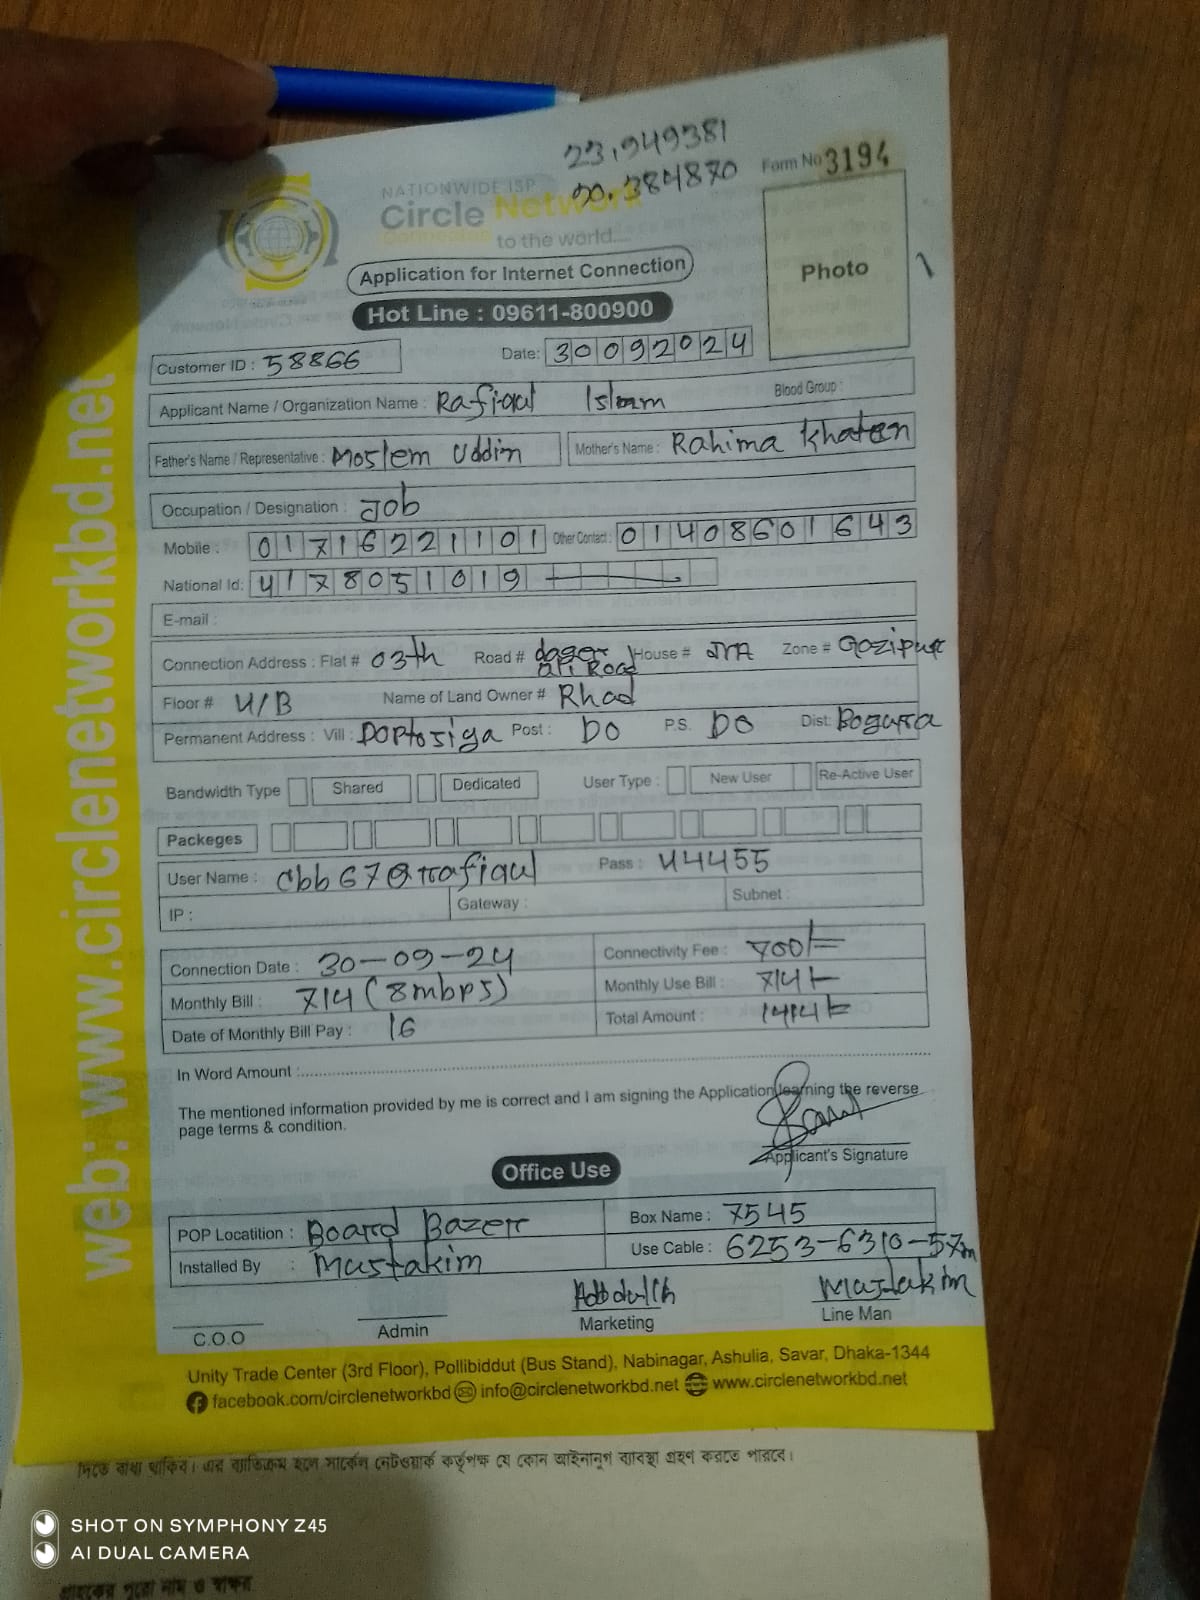 23.949381
90.384870
Form No 3194
NATIONWIDE ISP
Circle Network
Connected to the world....
Photo
Application for Internet Connection
Hot Line : 09611-800900
Customer ID : 58866 Date: 30092024
Applicant Name / Organization Name : Rafiqul Islam Blood Group :
Father's Name / Representative : Moslem Uddin Mother's Name : Rahima Khatun
Occupation / Designation : Job
Mobile : 01716221101 Other Contact : 01408601643
National Id: 4178051019
E-mail :
Connection Address : Flat # 03th Road # Ali Road House # Zone # Gazipur
Floor # U/B Name of Land Owner # Rhad
Permanent Address : Vill : Doptosiga Post : DO P.S. DO Dist: Bogura
Bandwidth Type Shared Dedicated User Type : New User Re-Active User
Packeges
User Name : cbb67@rafiqul Pass : 44455
IP : Gateway : Subnet :
Connection Date : 30-09-24 Connectivity Fee : 700/=
Monthly Bill : 714 (8mbps) Monthly Use Bill : 714/-
Date of Monthly Bill Pay : 16 Total Amount : 1414/=
In Word Amount :
The mentioned information provided by me is correct and I am signing the Application learning the reverse
page terms & condition.
Applicant's Signature
Office Use
POP Locatition : Board Bazer Box Name : 7545
Installed By : Mustakim Use Cable : 6253-6310-57m
Abdullh Mustakim
C.O.O Admin Marketing Line Man
Unity Trade Center (3rd Floor), Pollibiddut (Bus Stand), Nabinagar, Ashulia, Savar, Dhaka-1344
facebook.com/circlenetworkbd info@circlenetworkbd.net www.circlenetworkbd.net
web: www.circlenetworkbd.net
দিতে বাধ্য থাকিব। এর ব্যতিক্রম হলে সার্কেল নেটওয়ার্ক কর্তৃপক্ষ যে কোন আইনানুগ ব্যবস্থা গ্রহণ করতে পারবে।
গ্রাহকের পুরো নাম ও স্বাক্ষর
SHOT ON SYMPHONY Z45
AI DUAL CAMERA